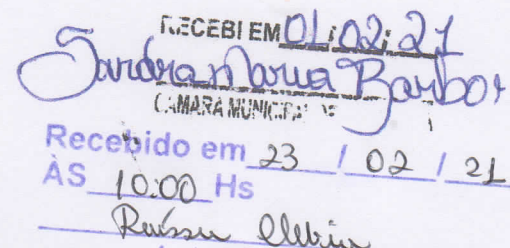 RECEBI EM 01/02/21
Sandra Maria Barbo
CAMARA MUNICIPAL
Recebido em 23 / 02 / 21
ÀS 10:00 Hs